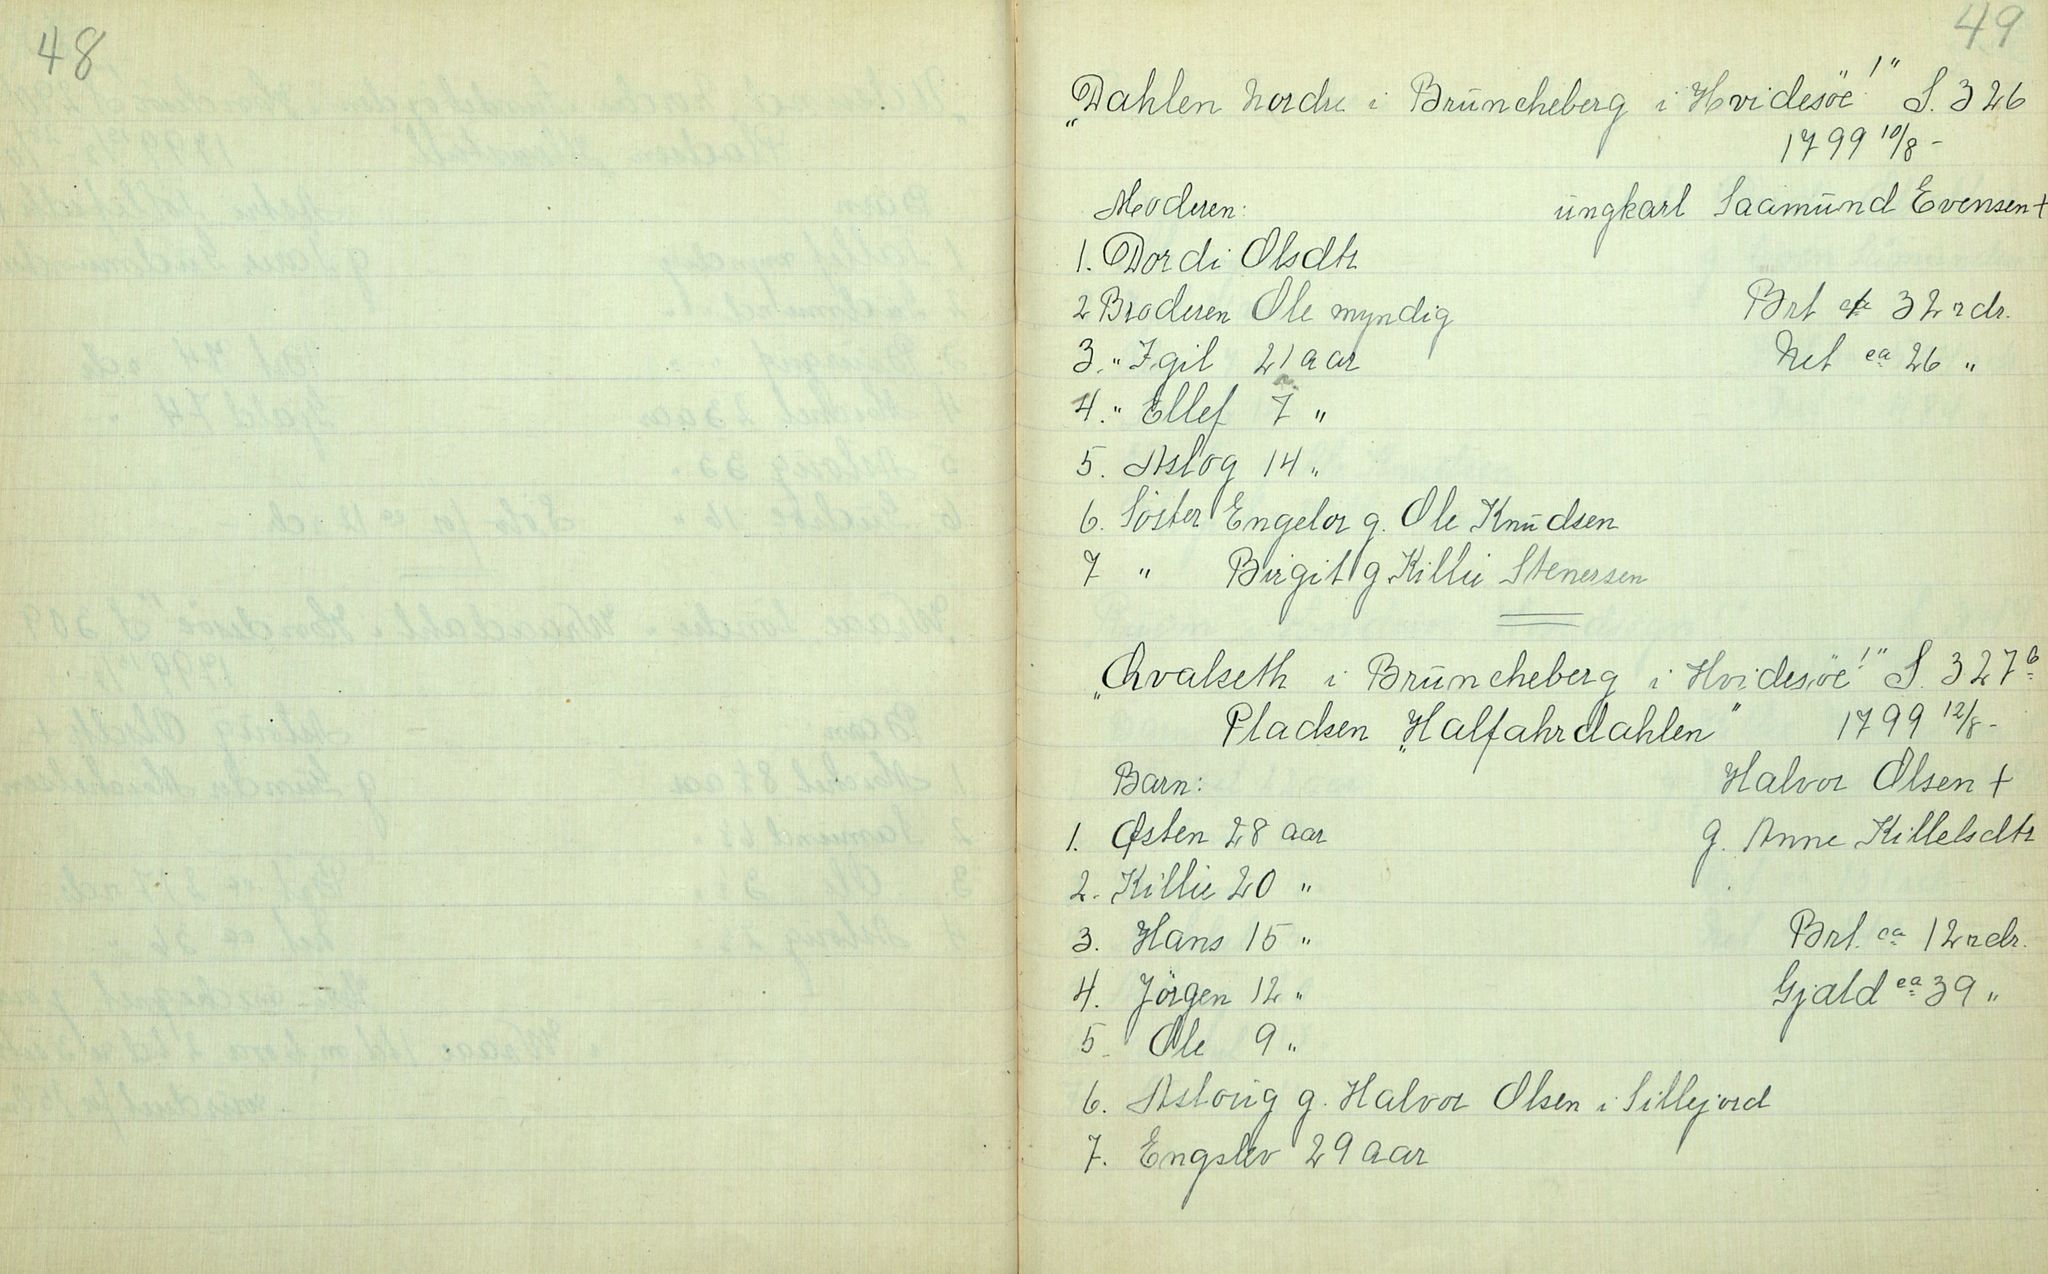 48
49
„Dahlen nordre i Brūncheberg i Hvidesöe!" S. 326
1799 10/8 -
Moderen: ūngkarl Saamūnd Evensen +
1. Dordi Olsdtr
2 Broderen Ole myndig Brt ca 32 rdr.
3. " Igil 21 aar Net ca 26 "
4. " Ellef 7 "
5. Aslog 14 "
6. Söster Engelor g. Ole Knūdsen
7 " Birgit g. Killie Stenersen
„Qvalseth i Brūncheberg i Hvidesöe!" S. 327 b
Pladsen „Halfahrdahlen" 1799 12/8 -
Barn: Halvor Olsen +
1. Østen 28 aar g. Anne Killelsdtr
2. Killie 20 "
3. Hans 15 " Brt. ca 12 rdr.
4. Jörgen 12 " Gjæld ca 39 "
5 Ole 9 "
6. Asloūg g. Halvor Olsen i Sillejord
7. Engslev 29 aar